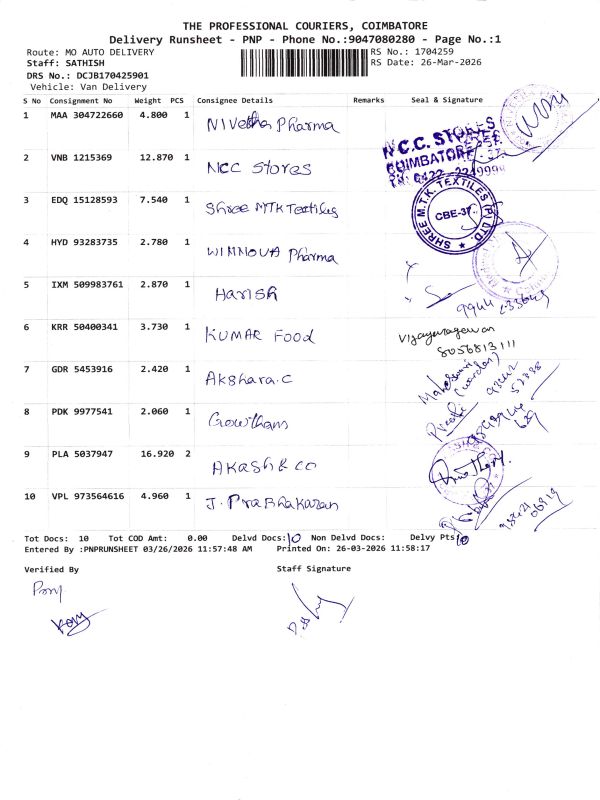 THE PROFESSIONAL COURIERS, COIMBATORE
Delivery Runsheet - PNP - Phone No.:9047080280 - Page No.:1
Route: MO AUTO DELIVERY
RS No.: 1704259
Staff: SATHISH
RS Date: 26-Mar-2026
DRS No.: DCJB170425901
Vehicle: Van Delivery
S No Consignment No Weight PCS Consignee Details Remarks Seal & Signature
1 MAA 304722660 4.800 1 Nivetha Pharma
2 VNB 1215369 12.870 1 NCC Stores
N.C.C. STORES
COIMBATORE
3 EDQ 15128593 7.540 1 Shree MTK Textiles
SHREE M.T.K. TEXTILES (P) LTD.
CBE-37
4 HYD 93283735 2.780 1 Pharma
5 IXM 509983761 2.870 1 Harish
6 KRR 50400341 3.730 1 KUMAR Food
8056813111
7 GDR 5453916 2.420 1 Akshara.C
(warden)
8 PDK 9977541 2.060 1 Gowtham
9 PLA 5037947 16.920 2 AKASH & CO
10 VPL 973564616 4.960 1 J. Prabhakaran
Tot Docs: 10 Tot COD Amt: 0.00 Delvd Docs: 10 Non Delvd Docs: Delvy Pts 10
Entered By :PNPRUNSHEET 03/26/2026 11:57:48 AM Printed On: 26-03-2026 11:58:17
Verified By
Staff Signature